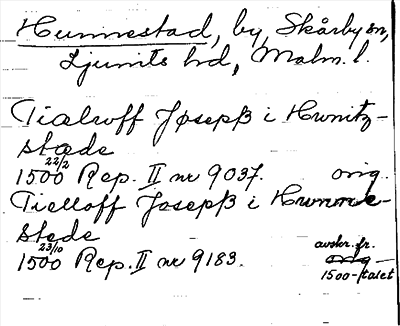 Hunnestad, by, Skårby sn,
Ljunits hd, Malm. l.
Tialuoff Jøsepß i Hwnitz-
stæde
22/2
1500 Rep. II nr 9037. orig.
Tielloff Josepß i Hunne-
stede
23/10
1500 Rep. II nr 9183. avskr. fr.
orig
1500-talet